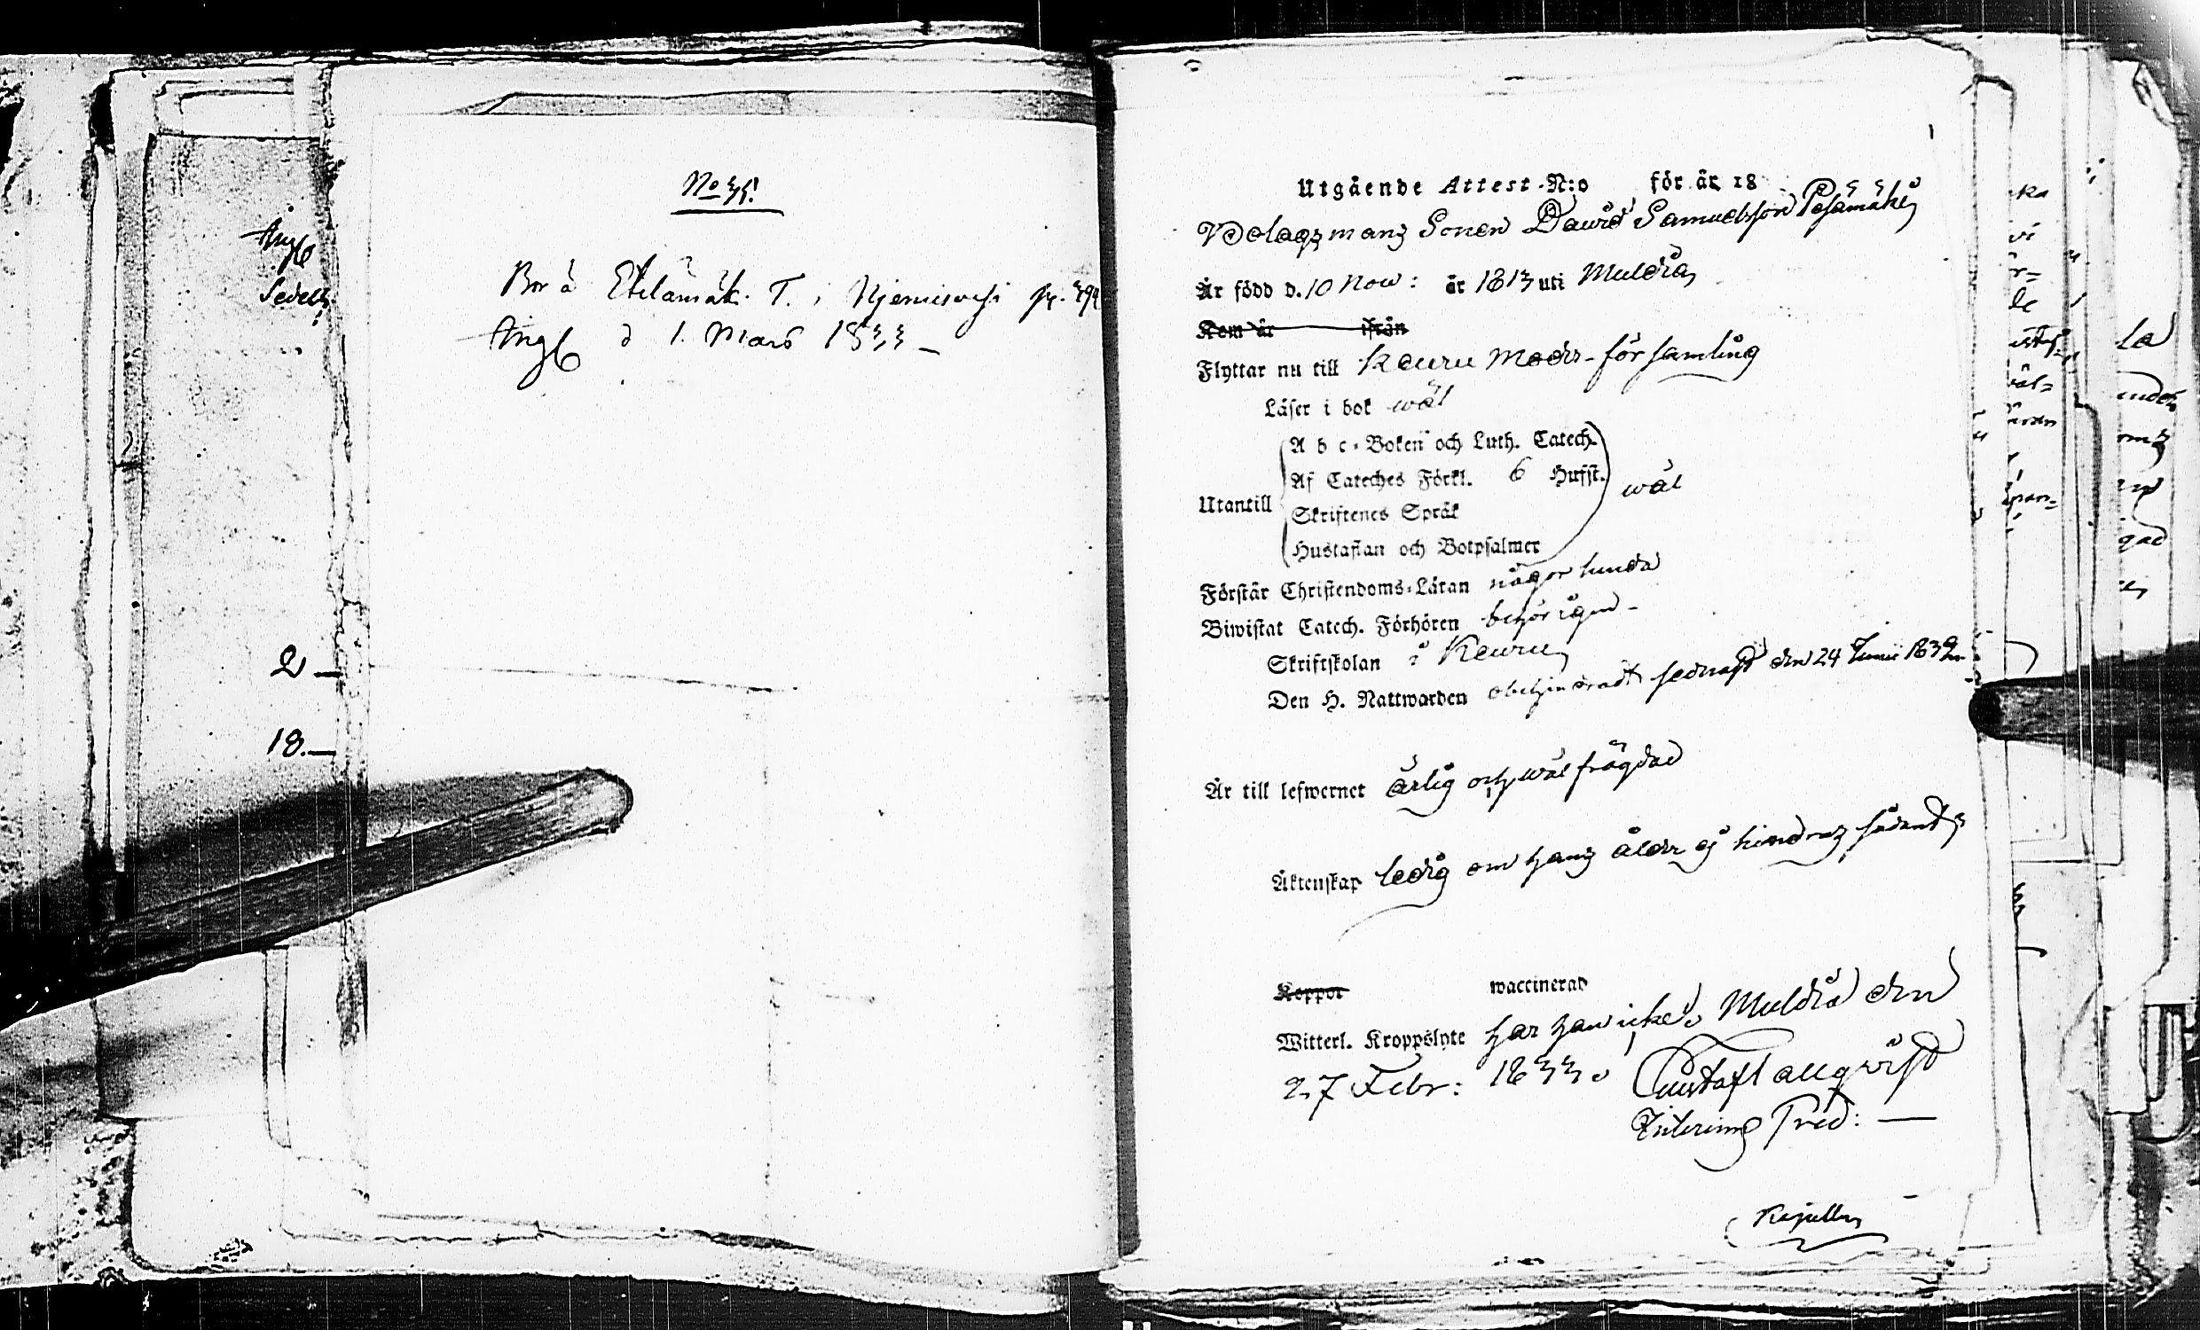 No 35.
Angf
Sedel
Bor å Etelämäk. T. i Njemisvesi p.
Angf d 1. Mars 1833
2
18.
Utgående Attest N:o för år 18
Bolagzmanz Sonen David Samuelsson Pesämäki
Är född d. 10 Nov: år 1813 uti Muldia
Kom år ifrån
Flyttar nu till Keuru Moder-församling
Läser i bok wäl
A b c-Boken och Luth. Catech.
Af Cateches Förkl. 6 Hufst. wäl
Utantill
Skriftenes Språk
Hustaflan och Botpsalmer
Förstår Christendoms-Läran någorlunda
Biwistat Catech. Förhören behörigen
Skriftskolan i Keuru
Den H. Nattwarden obehindradt sednast den 24 Junii 1832
Är till lefwernet ärlig och wälfrägdad
Äktenskap ledig om hanz ålder ej hindraz sådandt
Koppor waccinerad
Witterl. Kroppslyte har han icke. Muldia den
27 Febr: 1833. Gustaf Langqvist
Pred: